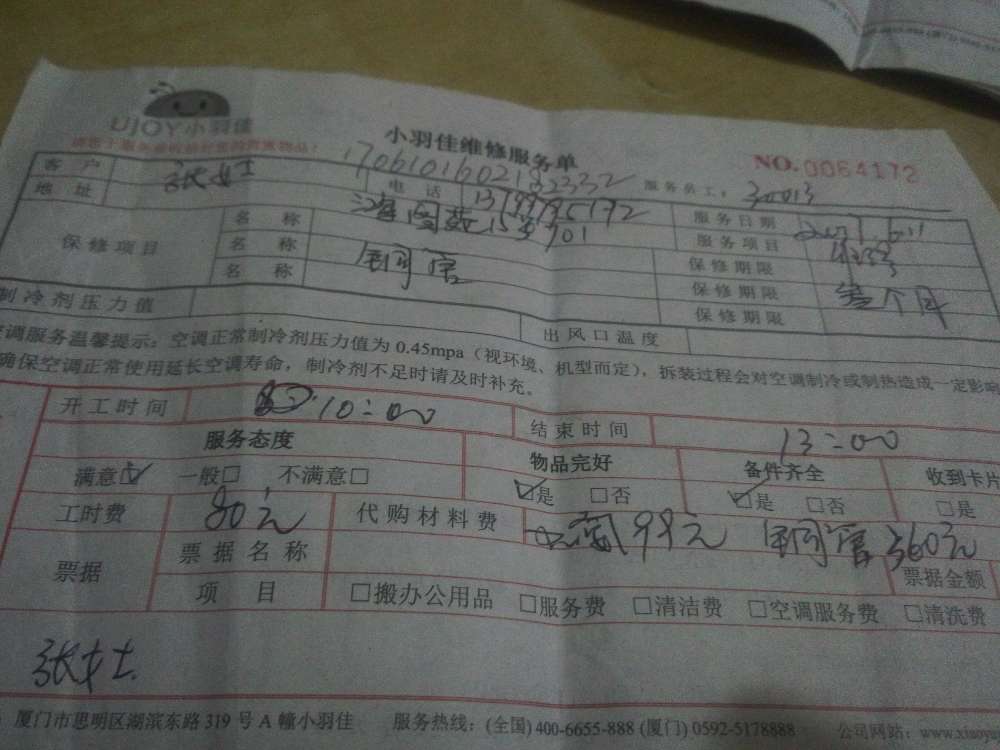 UJOY小羽佳
小羽佳维修服务单
NO.0064172
1706101602182332
服务员工: 30013
客户 张女士 电话 服务日期
地址 服务项目
保修项目 名称 保修期限
名称 铜管 保修期限
名称 保修期限
制冷剂压力值 出风口温度
空调服务温馨提示: 空调正常制冷剂压力值为 0.45mpa (视环境、机型而定), 拆装过程会对空调制冷或制热造成一定影响
确保空调正常使用延长空调寿命, 制冷剂不足时请及时补充。
开工时间 10:00 结束时间 13:00
服务态度 物品完好 备件齐全 收到卡片
满意☑ 一般□ 不满意□ ☑是 □否 ☑是 □否 □是
工时费 80元 代购材料费 99元 铜管360元
票据 票据名称 票据金额
项目 □搬办公用品 □服务费 □清洁费 □空调服务费 □清洗费
张女士
厦门市思明区湖滨东路 319 号 A 幢小羽佳 服务热线: (全国) 400-6655-888 (厦门) 0592-5178888 公司网站: www.xiaoyu